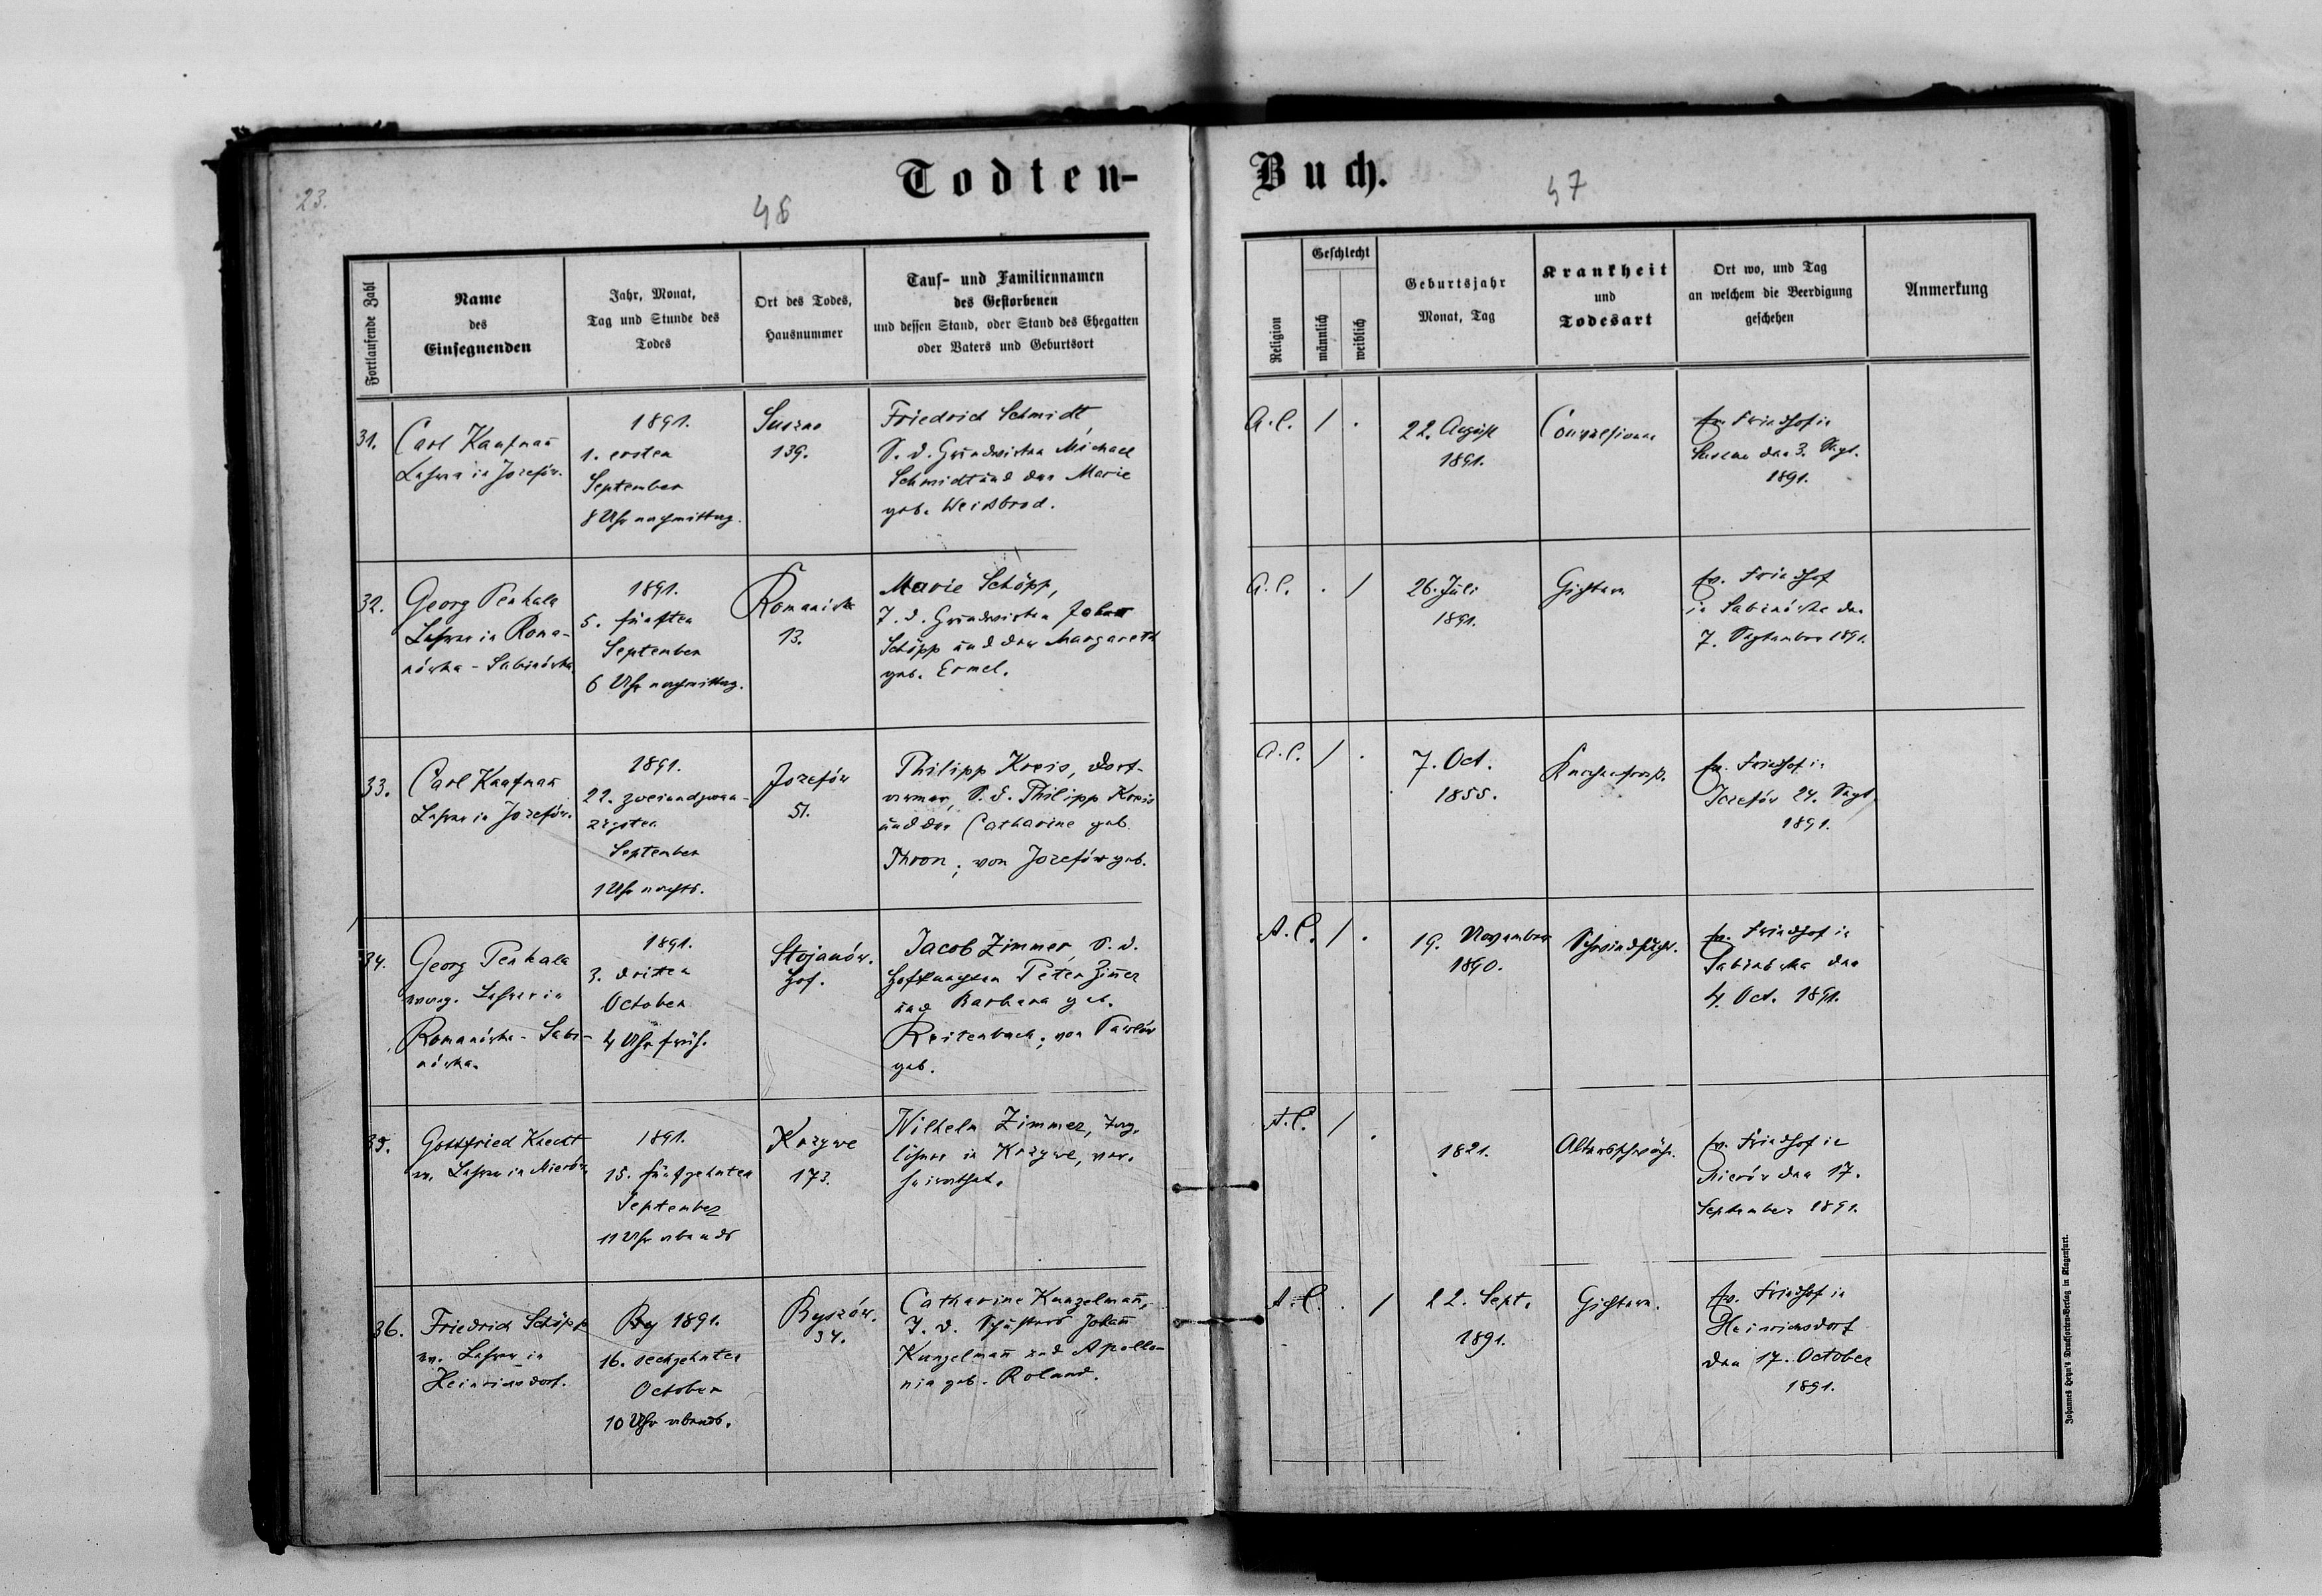 Todten-
Buch.
23.
46
47
Fortlaufende Zahl
Name
des
Einsegnenden
Jahr, Monat,
Tag und Stunde des
Todes
Ort des Todes,
Hausnummer
Tauf- und Familiennamen
des Gestorbenen
und dessen Stand, oder Stand des Ehegatten
oder Vaters und Geburtsort
Religion
Geschlecht
männlich
weiblich
Geburtsjahr
Monat, Tag
Krankheit
und
Todesart
Ort wo, und Tag
an welchem die Beerdigung
geschehen
Anmerkung
31.
Carl Kaufmañ
Lehrer in Jozefów.
1891.
1. ersten
September
8 Uhr nachmittag.
Suszno
139.
Friedrich Schmidt,
S. d. Grundwirthen Michael
Schmidt und der Marie
geb. Weissbrod.
A. C. / .
22. August
1891.
Convulsionen
ev. Friedhof in
Suszno den 3. Sept.
1891.
32.
Georg Penkala
Lehrer in Roma-
nówka - Sabinówka
1891.
5. fünften
September
6 Uhr nachmittag.
Romanówka
13.
Marie Schöpp,
T. d. Grundwirthen Johann
Schöpp und der Margareth
geb. Ermel.
A. C. . /
26. Juli
1891.
Gichtern
ev. Friedhof
in Sabinówka den
7. September 1891.
33.
Carl Kaufmañ
Lehrer in Jozefów.
1891.
22. zweiundzwan-
zigsten
September
1 Uhr nachts.
Jozefów
51.
Philipp Kreis, Dorf-
armer, S. d. Philipp Kreis
und der Catharine geb.
Thron; von Jozefów geb.
A. C. / .
7. Oct.
1855.
ev. Friedhof in
Jozefów 24. Sept.
1891.
34.
Georg Penkala
evang. Lehrer in
Romanówka - Sabi-
nówka.
1891.
3. dritten
October
4 Uhr früh.
Stojanów.
Hof.
Jacob Zimmer, S. d.
Peter Zim̃er
und Barbara geb.
Reitenbach; von Pawlów
geb.
A. C. / .
19. November
1890.
Schwindsucht.
ev. Friedhof in
Sabinówka den
4. Oct. 1891.
35.
Gottfried Knecht
ev. Lehrer in Mierów
1891.
15. fünfzehnten
September
11 Uhr abends
Krzywe
173.
Wilhelm Zimmer, Tag-
löhner in Krzywe, ver-
heirathet.
A. C. / .
1821.
Altersschwäche.
ev. Friedhof in
Mierów den 17.
September 1891.
36.
Friedrich Schöpp
ev. Lehrer in
Heinrichsdorf.
1891.
16. sechzehnten
October
10 Uhr abends.
Ryszów.
34.
Catharine Kunzelmañ,
T. d. Schusters Johañ
Kunzelmañ und Apollo-
nia geb. Roland.
A. C. . /
22. Sept.
1891.
Gichtern.
ev. Friedhof in
Heinrichsdorf
den 17. October
1891.
Johannes Heyn's Drucksorten-Verlag in Klagenfurt.